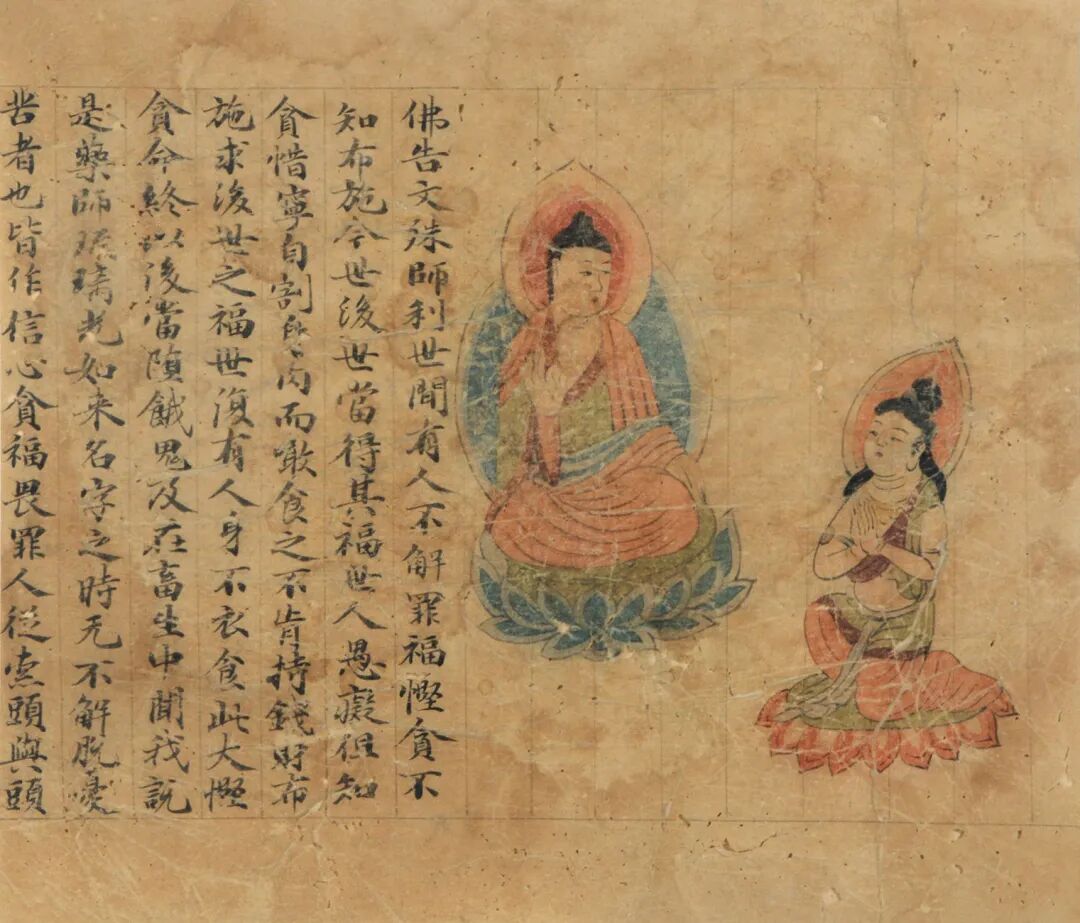 佛告文殊師利世間有人不解罪福慳貪不
知布施今世後世當得其福世人愚癡但知
貪惜寧自割身肉而噉食之不肯持錢財布
施求後世之福世復有人身不衣食此大慳
貪命終以後當墮餓鬼及在畜生中聞我說
是藥師琉璃光如来名字之時无不解脫憂
苦者也皆作信心貪福畏罪人從索頭與頭